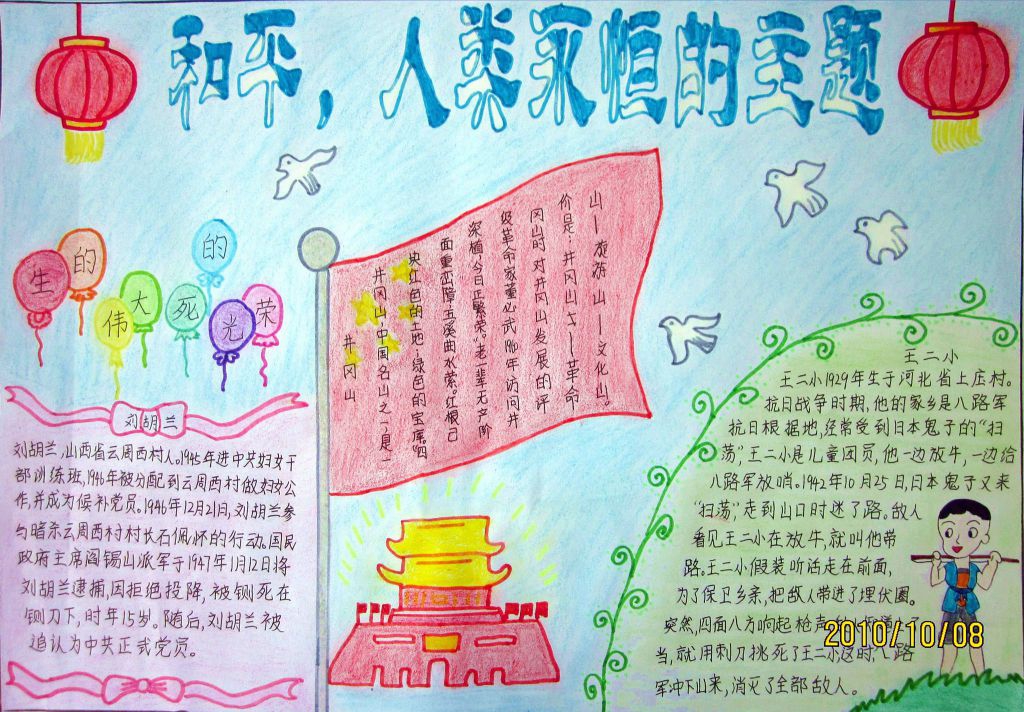 和平，人类永恒的主题
生的伟大
死的光荣
刘胡兰
刘胡兰，山西省云周西村人。1945年进中共妇女干
部训练班，1946年被分配到云周西村做妇女公
作，并成为候补党员。1946年12月21日，刘胡兰参
与暗杀云周西村村长石佩怀的行动。国民
政府主席阎锡山派军于1947年1月12日将
刘胡兰逮捕，因拒绝投降，被铡死在
铡刀下，时年15岁。随后，刘胡兰被
追认为中共正式党员。
井冈山
井冈山，中国名山之一，是一
块红色的土地，绿色的宝库。“四
面重峦障，五溪曲水萦。红根已
深植，今日正繁荣。”老一辈无产阶
级革命家董必武1960年访问井
冈山时对井冈山发展的评
价是：井冈山——革命
山——旅游山——文化山。
王二小
王二小1929年生于河北省上庄村。
抗日战争时期，他的家乡是八路军
抗日根据地，经常受到日本鬼子的“扫
荡”，王二小是儿童团员，他一边放牛，一边给
八路军放哨。1942年10月25日，日本鬼子又来
“扫荡”，走到山口时迷了路。敌人
看见王二小在放牛，就叫他带
路。王二小假装听话走在前面，
为了保卫乡亲，把敌人带进了埋伏圈。
突然，四面八方响起枪声
当，就用刺刀挑死了王二小这时，八路
军冲下山来，消灭了全部敌人。
2010/10/08